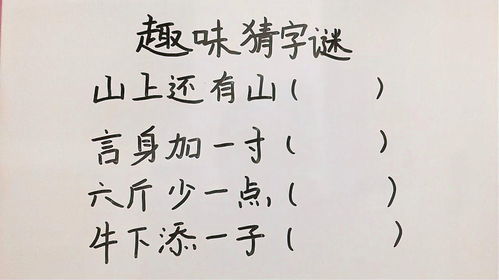 趣味猜字谜
山上还有山（ ）
言身加一寸（ ）
六斤少一点,（ ）
牛下添一子（ ）